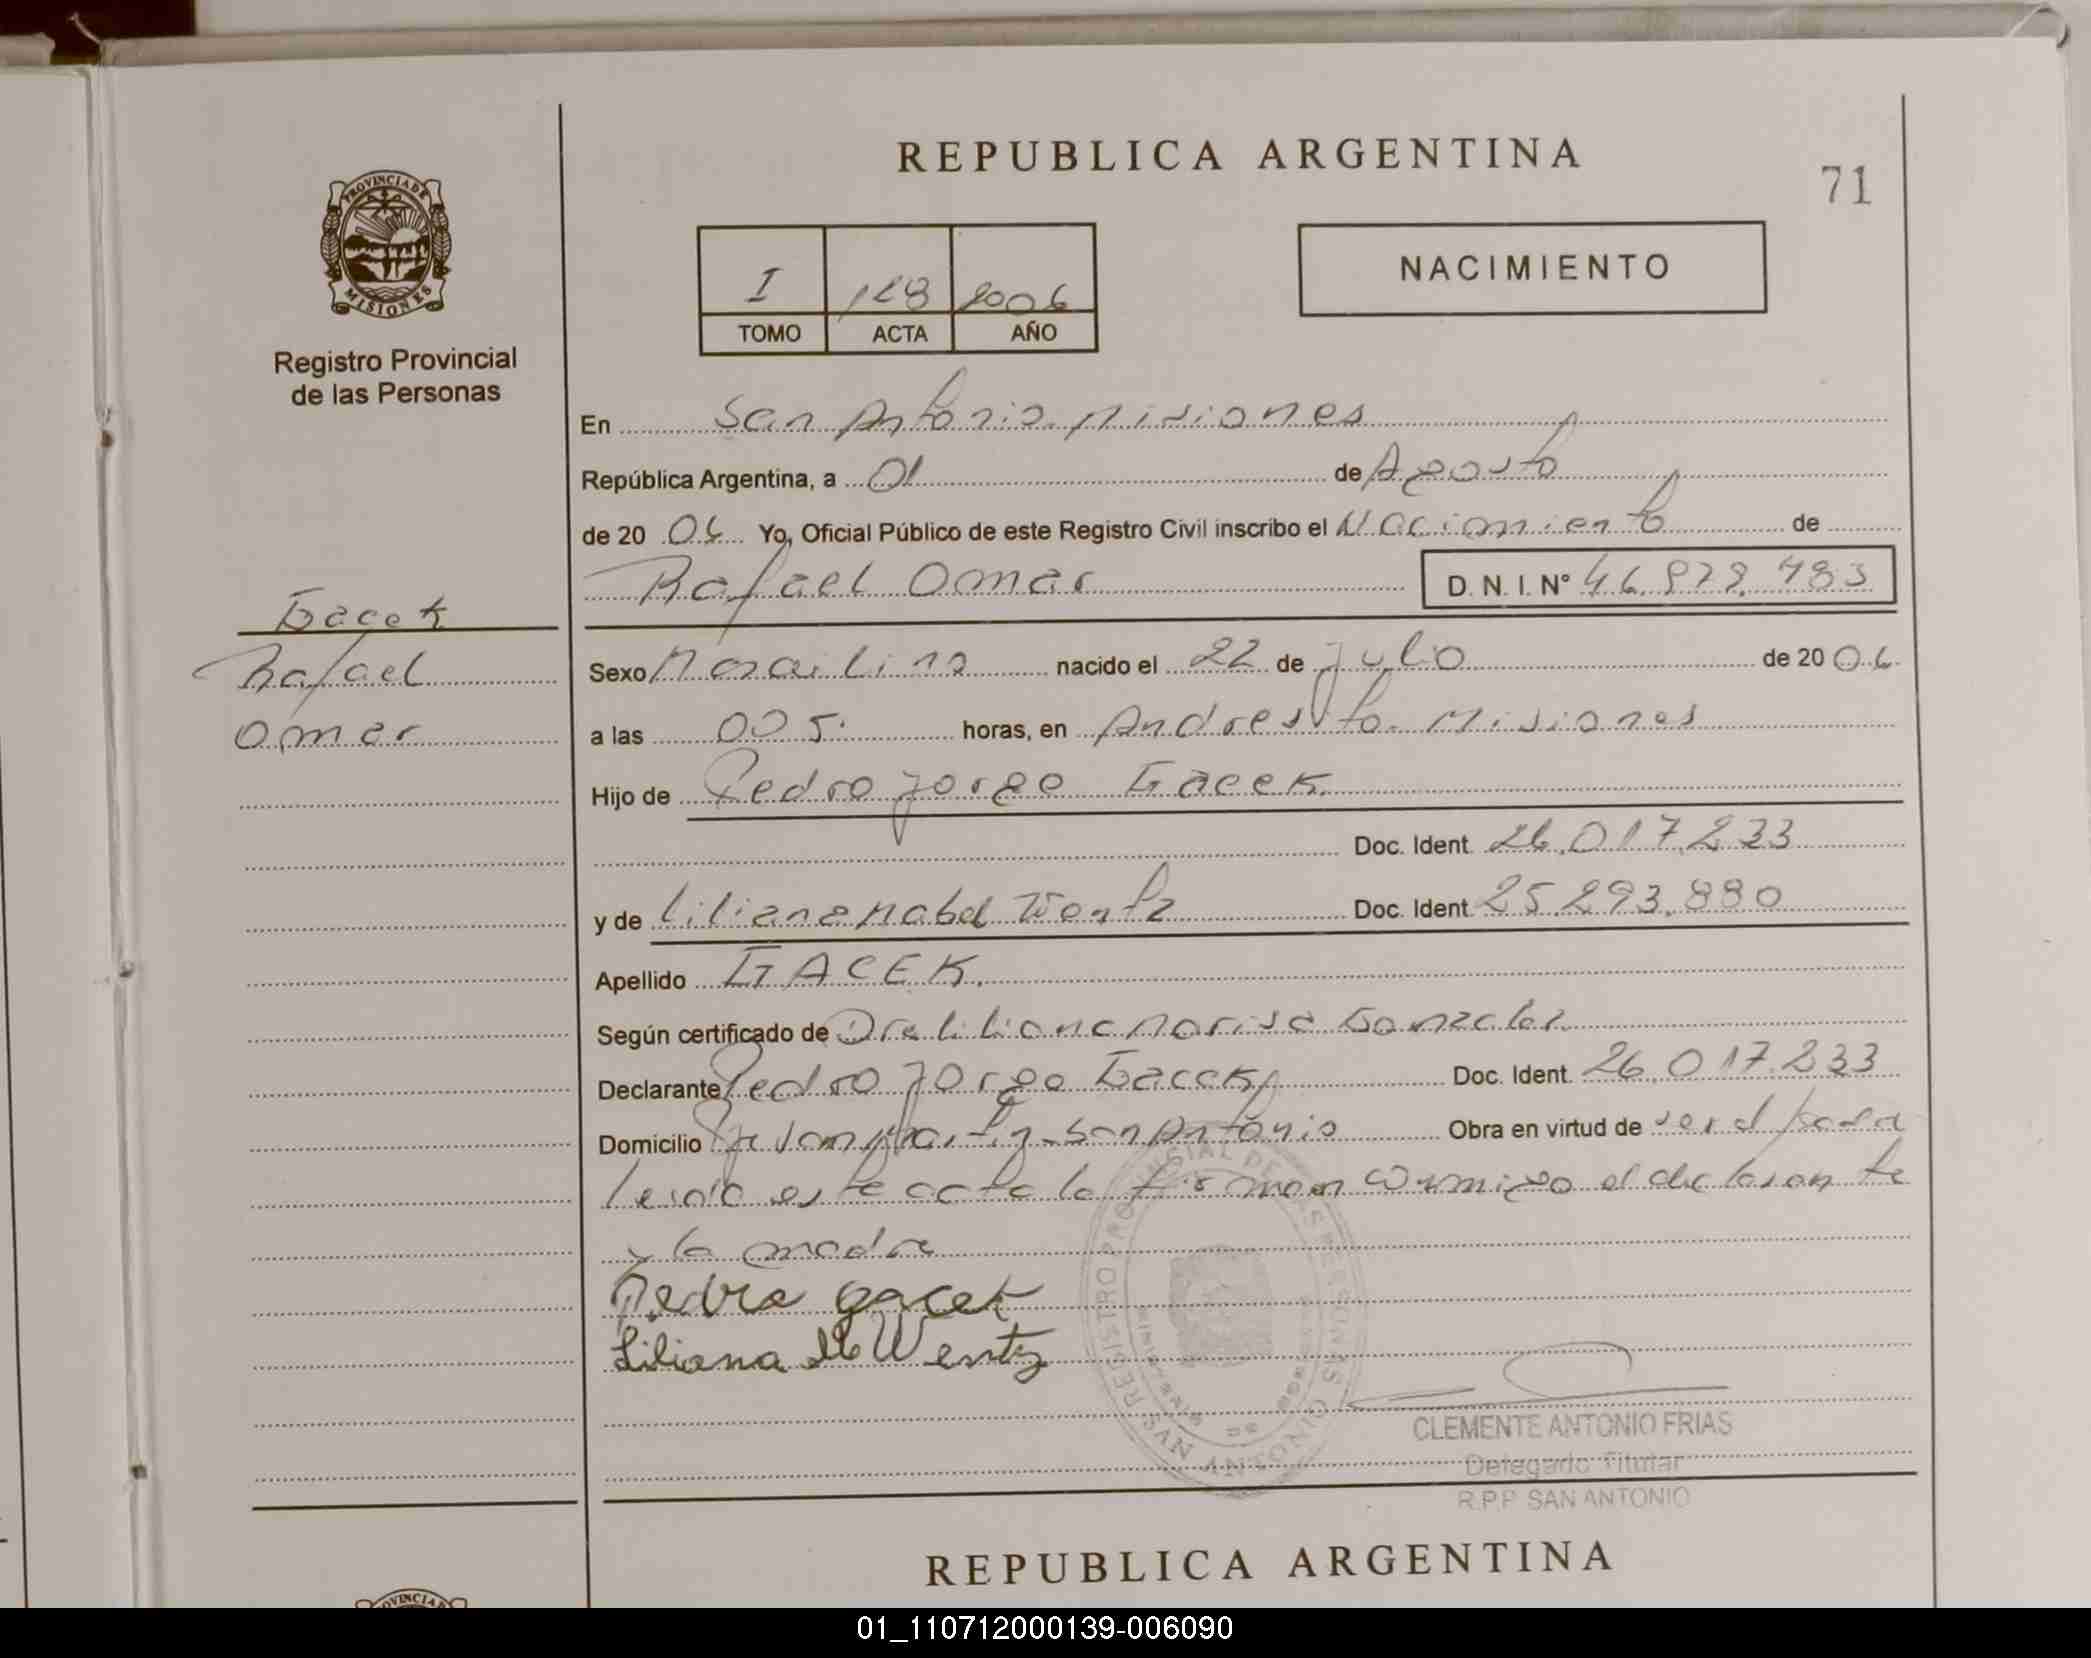 REPUBLICA ARGENTINA
71
PROVINCIA DE
MISIONES
Registro Provincial
de las Personas
I 128 2006
TOMO ACTA AÑO
NACIMIENTO
En San Antonio. Misiones
República Argentina, a 01 de Agosto
de 20 06 Yo, Oficial Público de este Registro Civil inscribo el Nacimiento de
Rafael Omar D. N. I. N° 46.878.483
Gacek
Rafael
Omar
Sexo Masculino nacido el 22 de julio de 20 06
a las 005. horas, en Andresito. Misiones
Hijo de Pedro Jorge Gacek.
Doc. Ident. 26.017.233
y de Liliana Mabel Wentz Doc. Ident. 25.293.880
Apellido GACEK.
Según certificado de Dra Liliana Marisa Gonzalez.
Declarante Pedro Jorge Gacek Doc. Ident. 26.017.233
Domicilio San Antonio Obra en virtud de ser el padre
Leida este acta la firman conmigo el declarante
y la madre
Pedro gacek
Liliana M Wentz
REGISTRO PROVINCIAL DE LAS PERSONAS
SAN ANTONIO
CLEMENTE ANTONIO FRIAS
Delegado Titular
R.P.P. SAN ANTONIO
REPUBLICA ARGENTINA
01_110712000139-006090